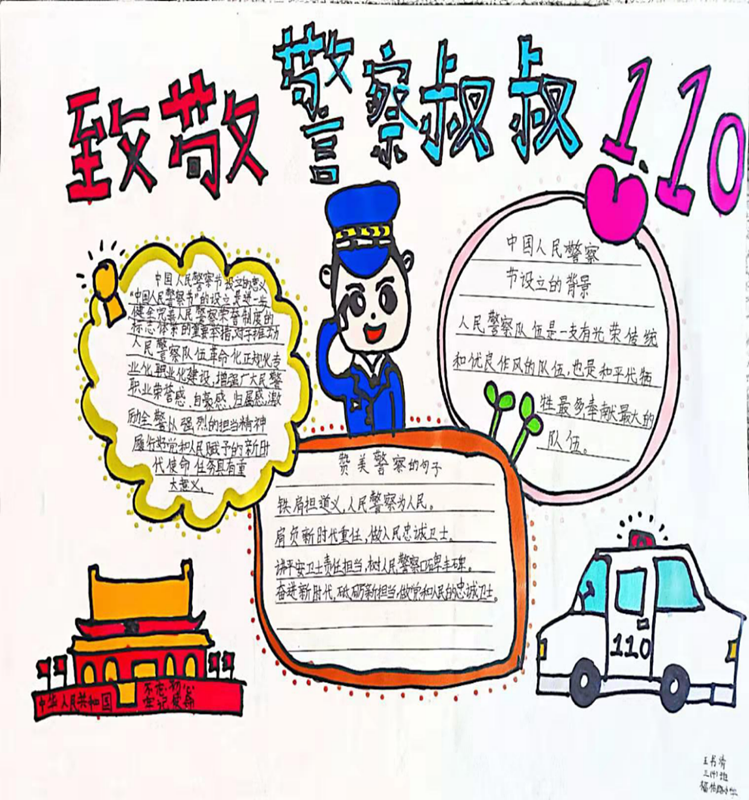 致敬警察叔叔1.10
中国人民警察节设立的意义
"中国人民警察节"的设立是进一步
健全完善人民警察荣誉制度的
标志体系的重要举措对于推动
人民警察队伍革命化正规化专
业化职业化建设,增强广大民警
职业荣誉感,自豪感,归属感,激
励全警以强烈的担当精神
履行好党和人民赋予的新时
代使命任务具有重
大意义。
中国人民警察
节设立的背景
人民警察队伍是一支有光荣传统
和优良作风的队伍,也是和平代牺
牲最多奉献最大的
队伍。
赞美警察的句子
铁肩担道义,人民警察为人民。
肩负新时代重任,做人民忠诚卫士。
讲平安卫士责任担当,树人民警察口碑丰碑。
奋进新时代,砥砺新担当,做党和人民的忠诚卫士。
中华人民共和国
不忘初心
牢记使命
110
三(4)班